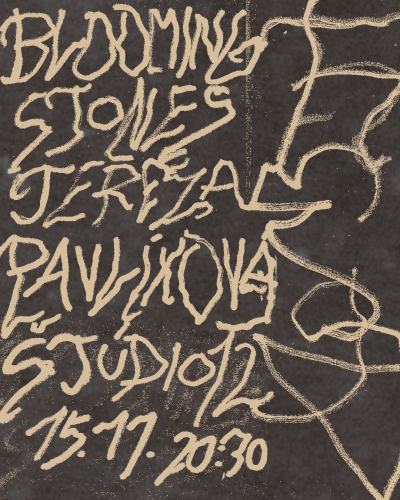 BLOOMING
STONES
TEREZA
PAVLIXOVÁ
ŠTÚDIO12
15.11. 20:30